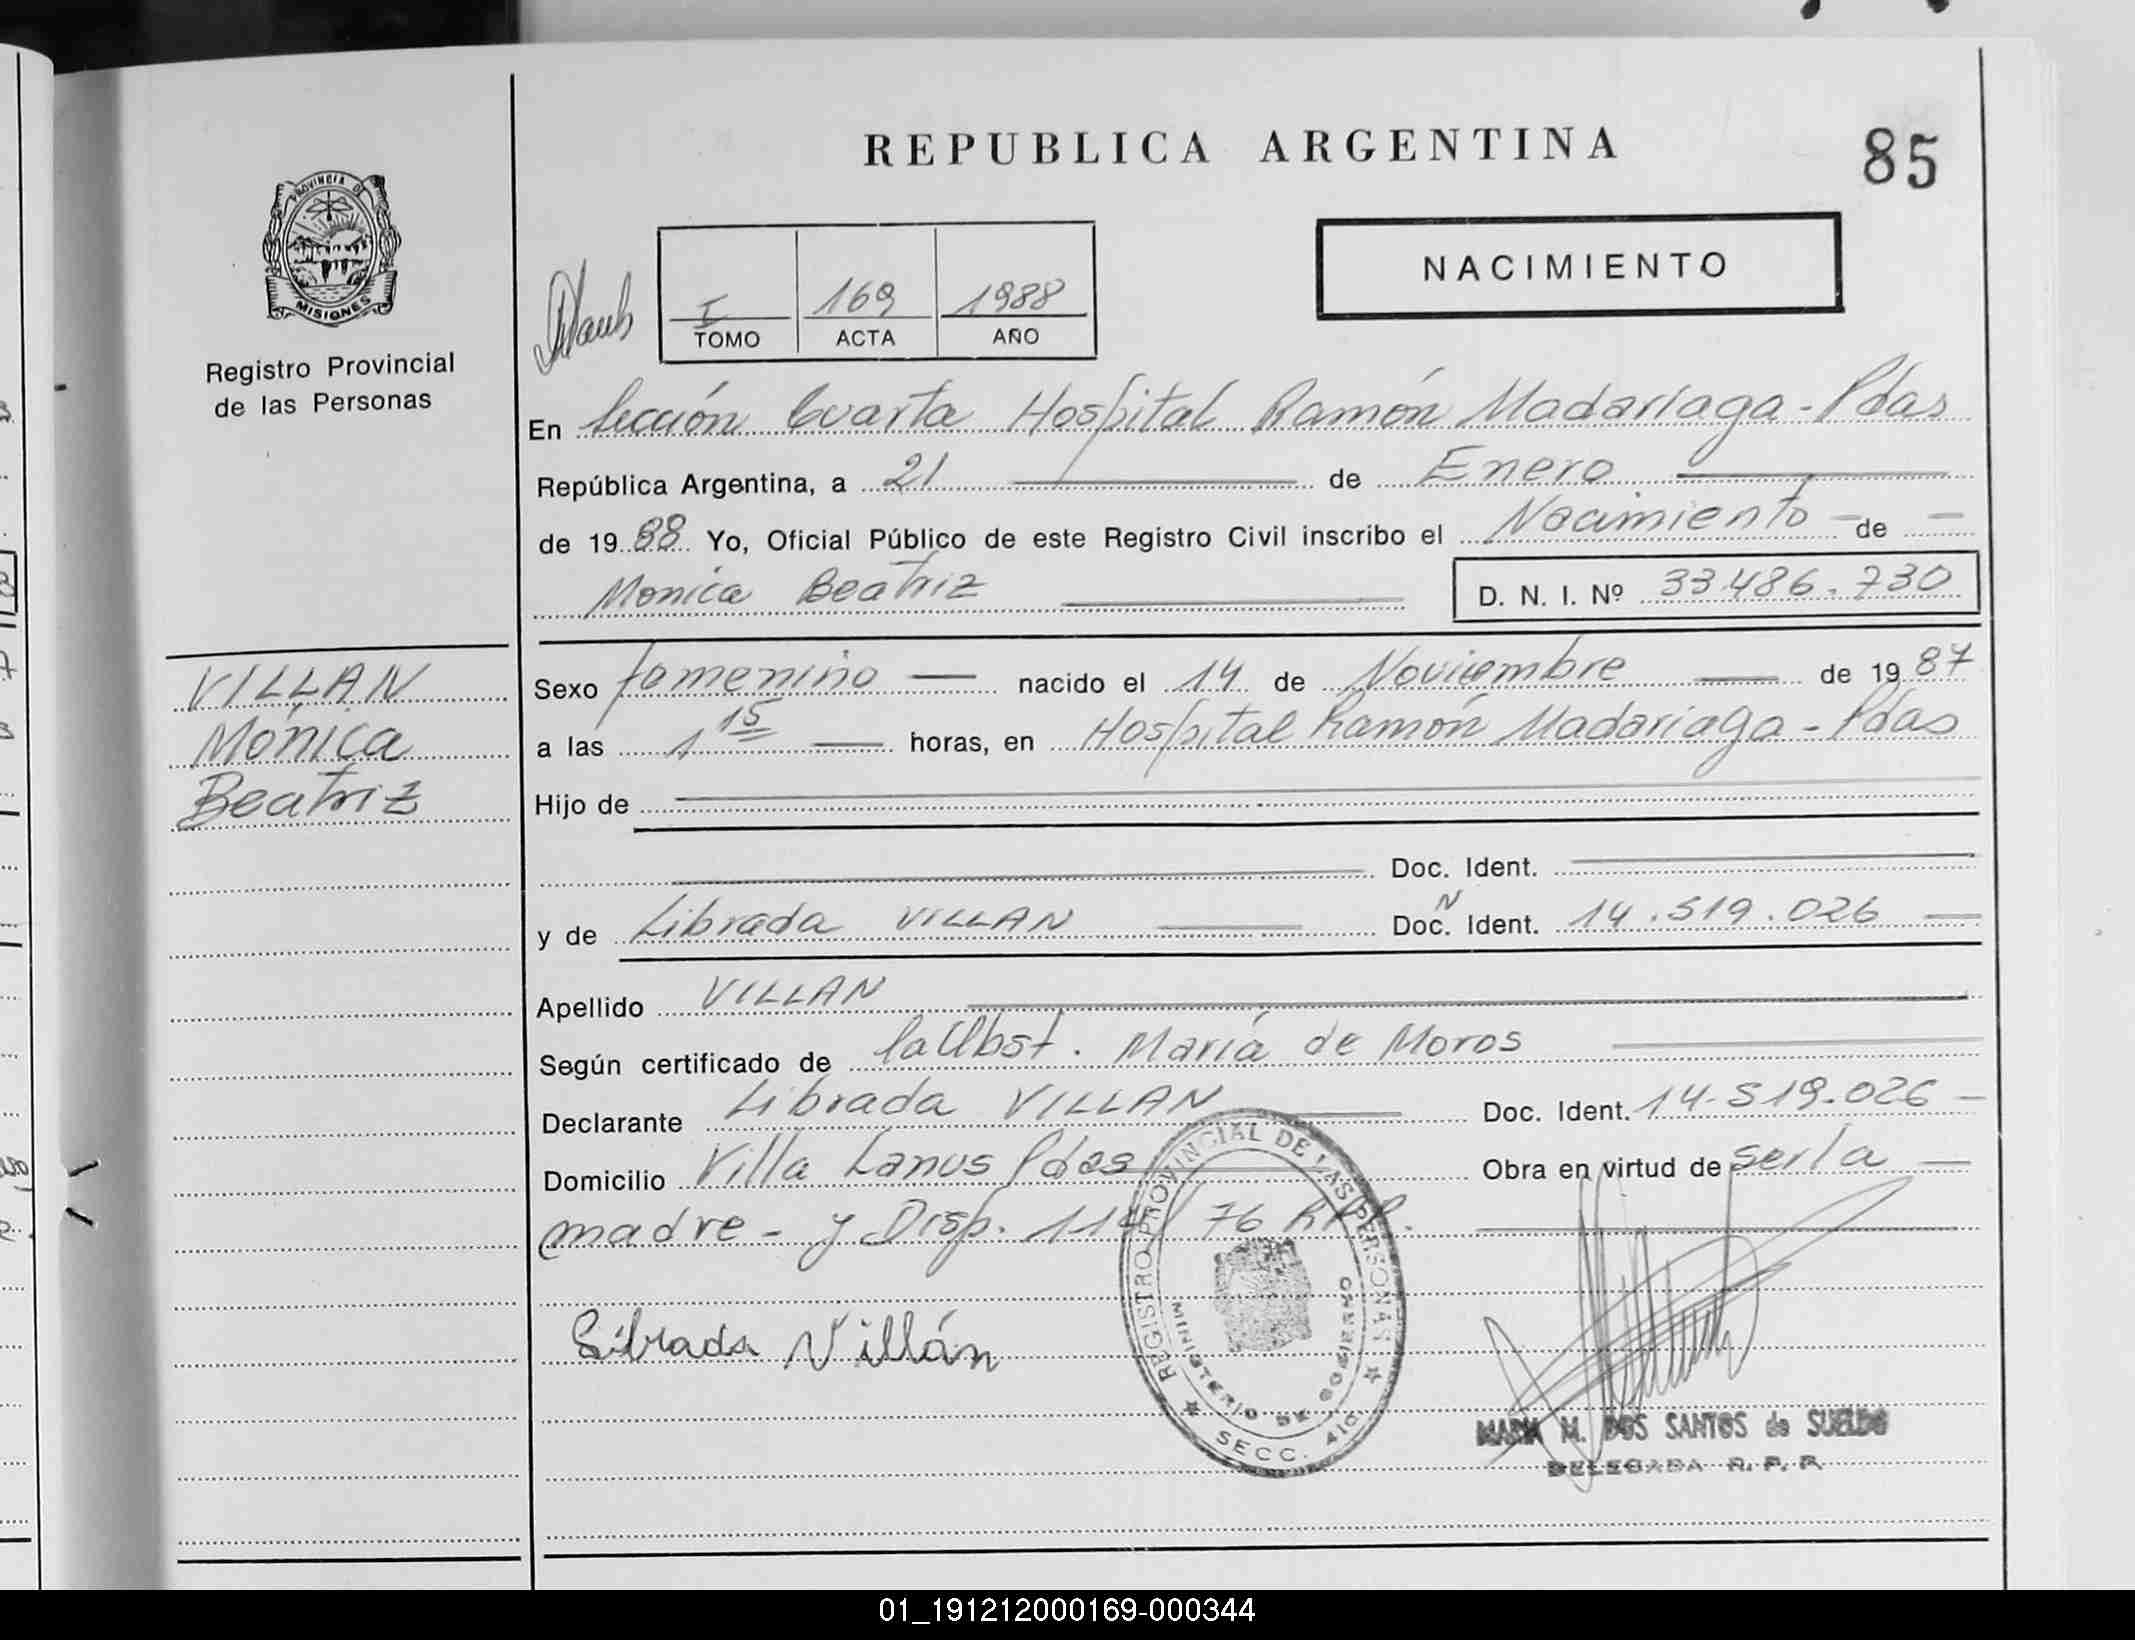 REPUBLICA ARGENTINA
85
PROVINCIA DE
MISIONES
Registro Provincial
de las Personas
I 169 1988
TOMO ACTA AÑO
NACIMIENTO
En Sección Cuarta Hospital Ramón Madariaga - Pdas
República Argentina, a 21 de Enero
de 1988 Yo, Oficial Público de este Registro Civil inscribo el Nacimiento de
Monica Beatriz D. N. I. Nº 33.486.730
VILLAN
Mónica
Beatriz
Sexo femenino nacido el 14 de Noviembre de 1987
a las 1 15 horas, en Hospital Ramón Madariaga - Pdas
Hijo de
Doc. Ident.
y de Librada VILLAN Doc. N Ident. 14.519.026
Apellido VILLAN
Según certificado de la Obst. María de Moros
Declarante Librada VILLAN Doc. Ident. 14.519.026
Domicilio Villa Lanus Pdas Obra en virtud de ser la
madre - y Disp. /76 RPP.
Librada Villán
REGISTRO PROVINCIAL DE LAS PERSONAS
MINISTERIO DE GOBIERNO
SECC. 4ta
MARIA M. DOS SANTOS de SUELDO
DELEGADA R. P. P.
01_191212000169-000344